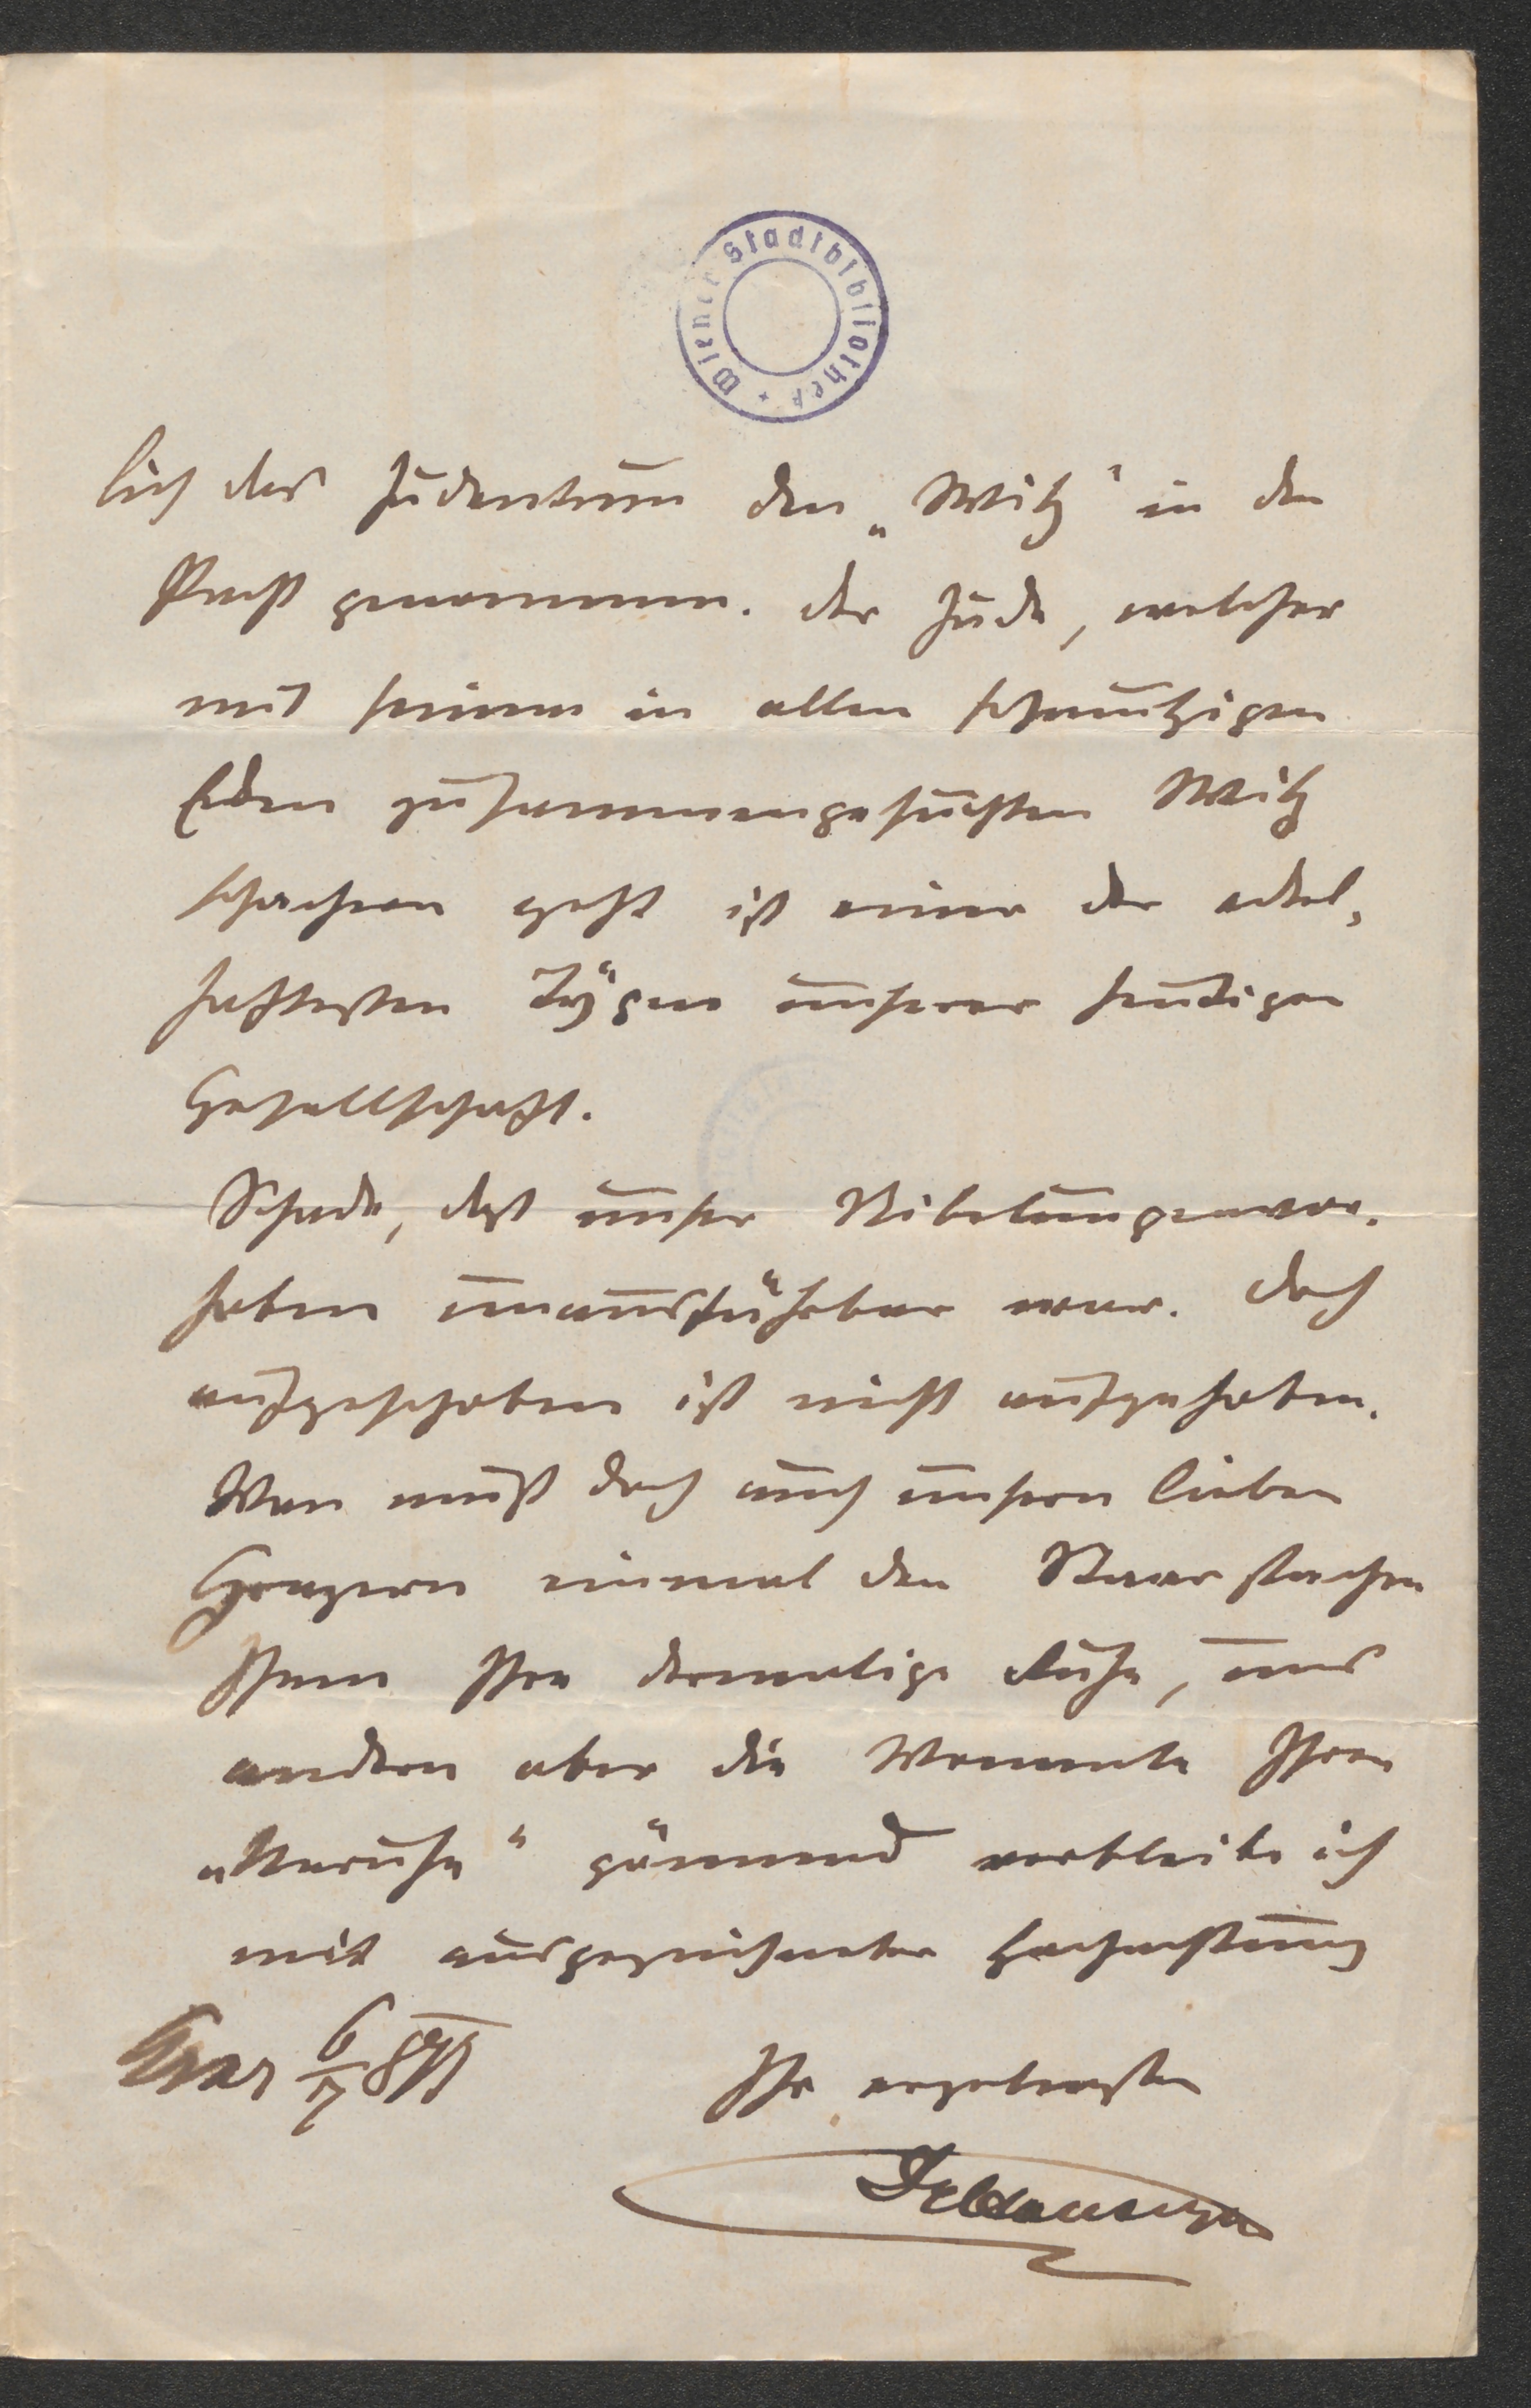 Wiener Stadtbibliothek
lich das Judentum den „Witz“ in den
Pacht genommen. Der Jude, welcher
mit seinem in allen schmutzigen
Ecken zusammengesuchten Witz
schachern geht ist einer der eckel-
haftesten Typen unserer heutigen
Gesellschaft.
Schade, daß unser Nibelungenvor-
haben unausführbar war. Doch
aufgeschoben ist nicht aufgehoben.
Man muß doch auch unsern lieben
Grazern einmal den Staar stechen
Ihnen Ihre dermalige Ruhe, uns
andern aber die Momente Ihrer
„Unruhe“ gönnend verbleibe ich
mit ausgezeichneter Hochachtung
Graz 6/7
Ihr ergebenster